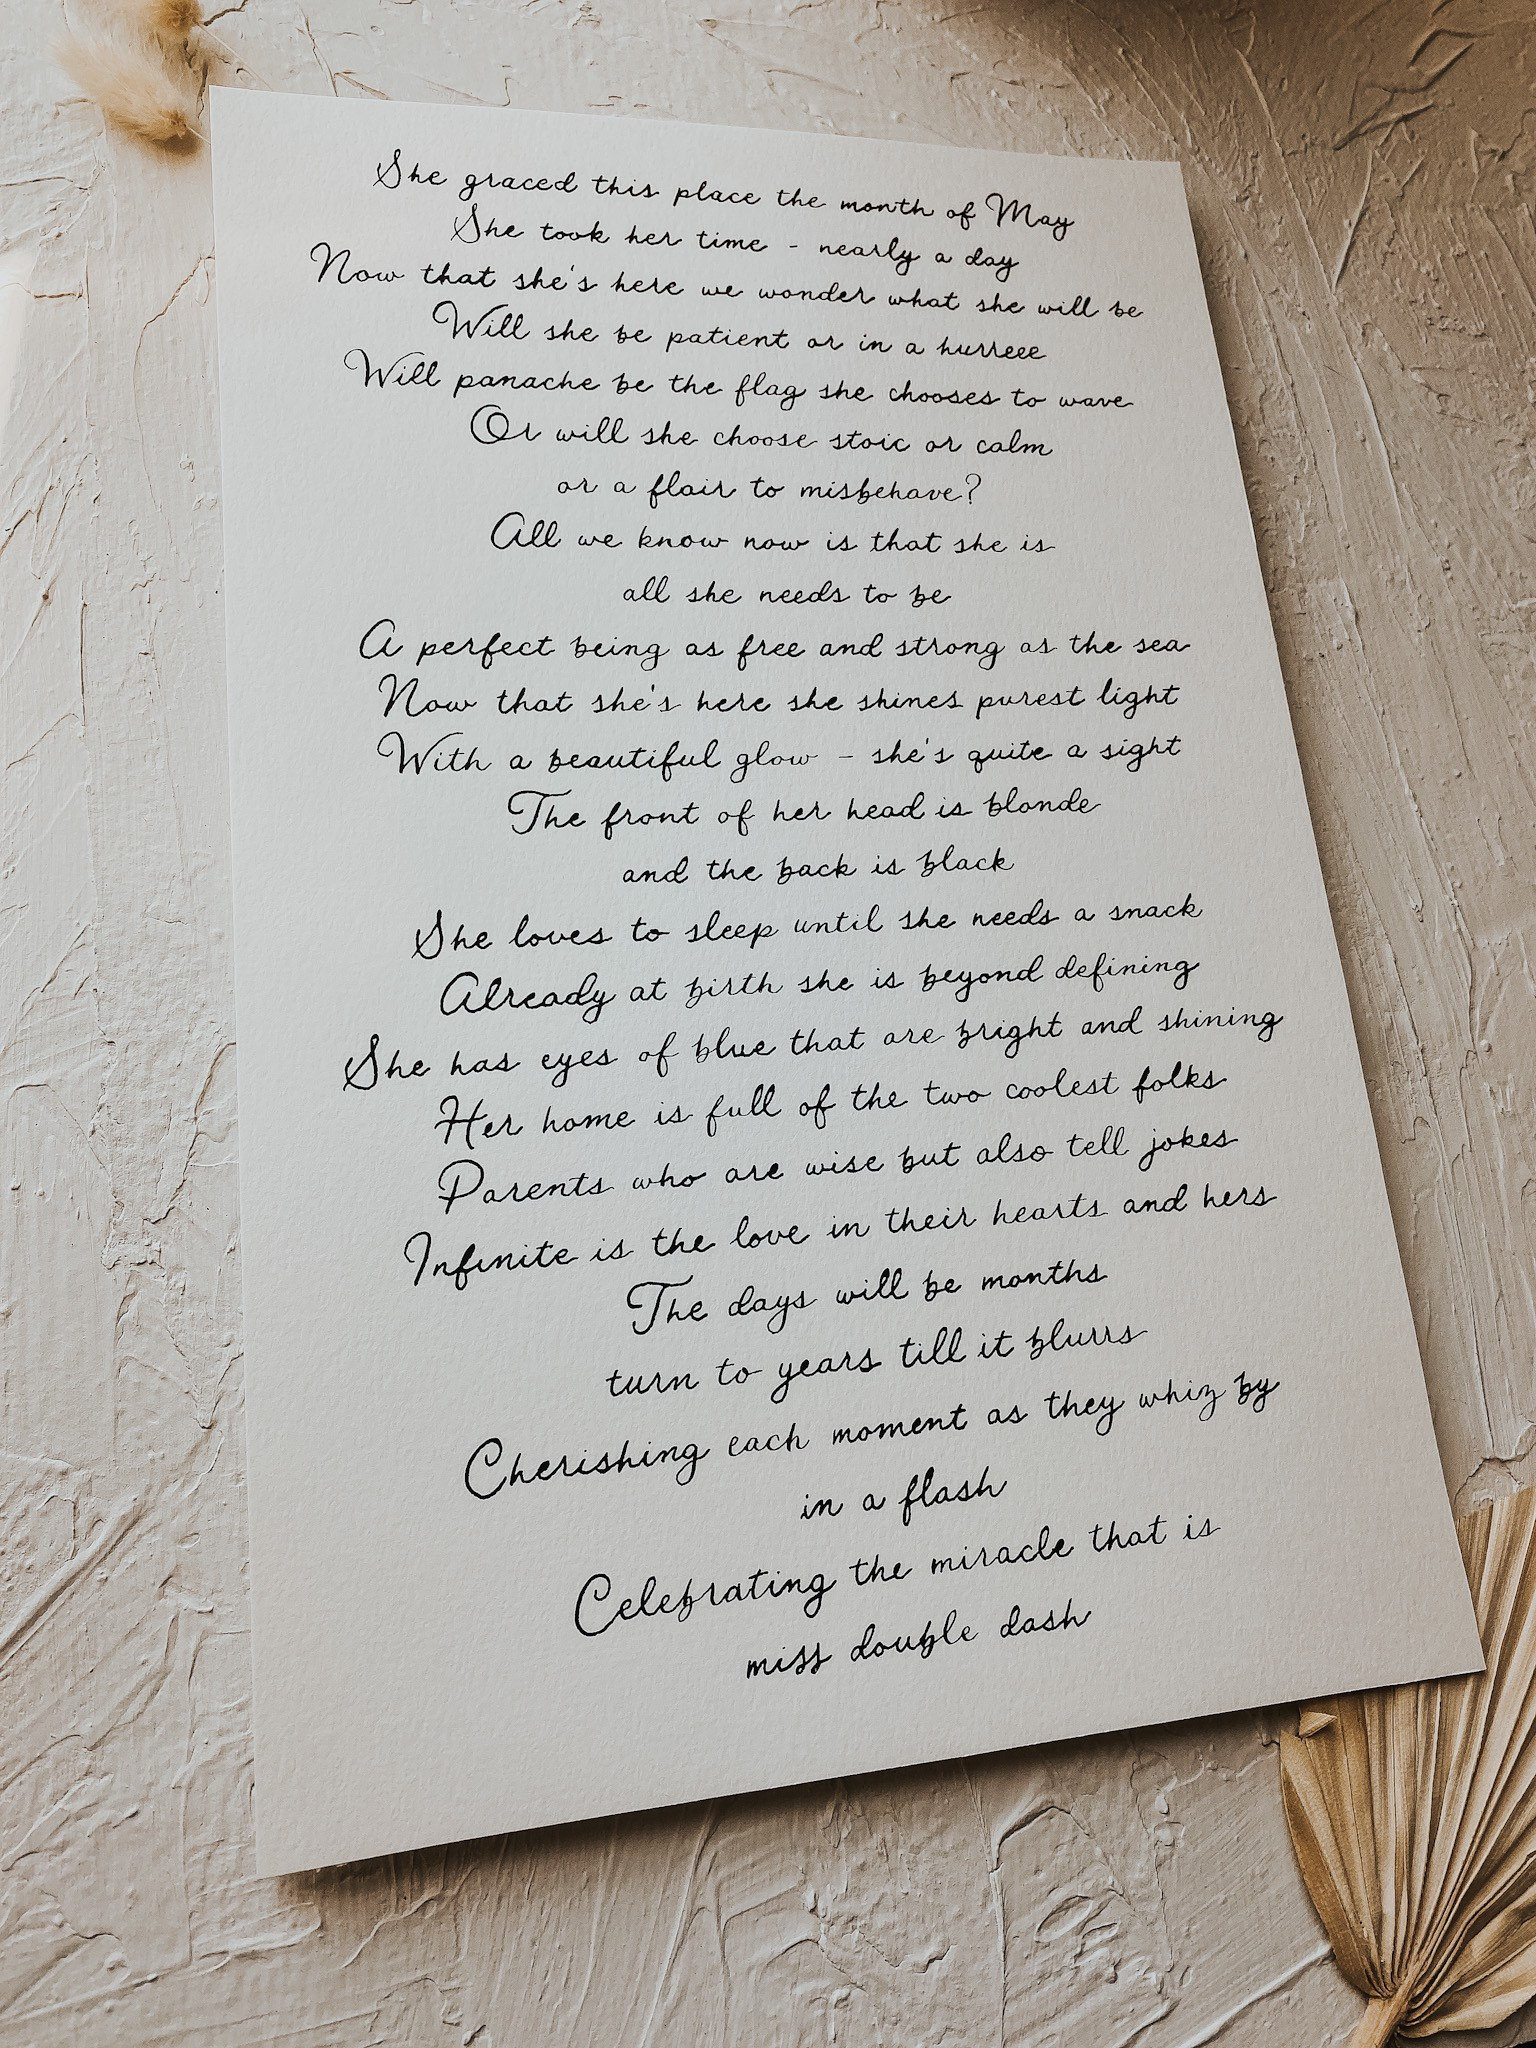 She graced this place the month of May
She took her time - nearly a day
Now that she's here we wonder what she will be
Will she be patient or in a hurreee
Will panache be the flag she chooses to wave
Or will she choose stoic or calm
or a flair to misbehave?
All we know now is that she is
all she needs to be
A perfect being as free and strong as the sea
Now that she's here she shines purest light
With a beautiful glow - she's quite a sight
The front of her head is blonde
and the back is black
She loves to sleep until she needs a snack
Already at birth she is beyond defining
She has eyes of blue that are bright and shining
Her home is full of the two coolest folks
Parents who are wise but also tell jokes
Infinite is the love in their hearts and hers
The days will be months
turn to years till it blurrs
Cherishing each moment as they whiz by
in a flash
Celebrating the miracle that is
miss double dash